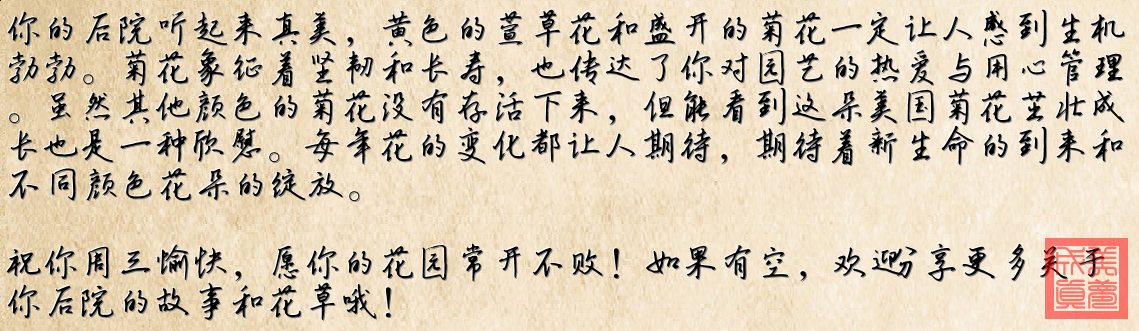 你的后院听起来真美，黄色的萱草花和盛开的菊花一定让人感到生机
勃勃。菊花象征着坚韧和长寿，也传达了你对园艺的热爱与用心管理
。虽然其他颜色的菊花没有存活下来，但能看到这朵美国菊花茁壮成
长也是一种欣慰。每年花的变化都让人期待，期待着新生命的到来和
不同颜色花朵的绽放。
祝你周三愉快，愿你的花园常开不败！如果有空，欢迎分享更多关于
你后院的故事和花草哦！
美梦成真